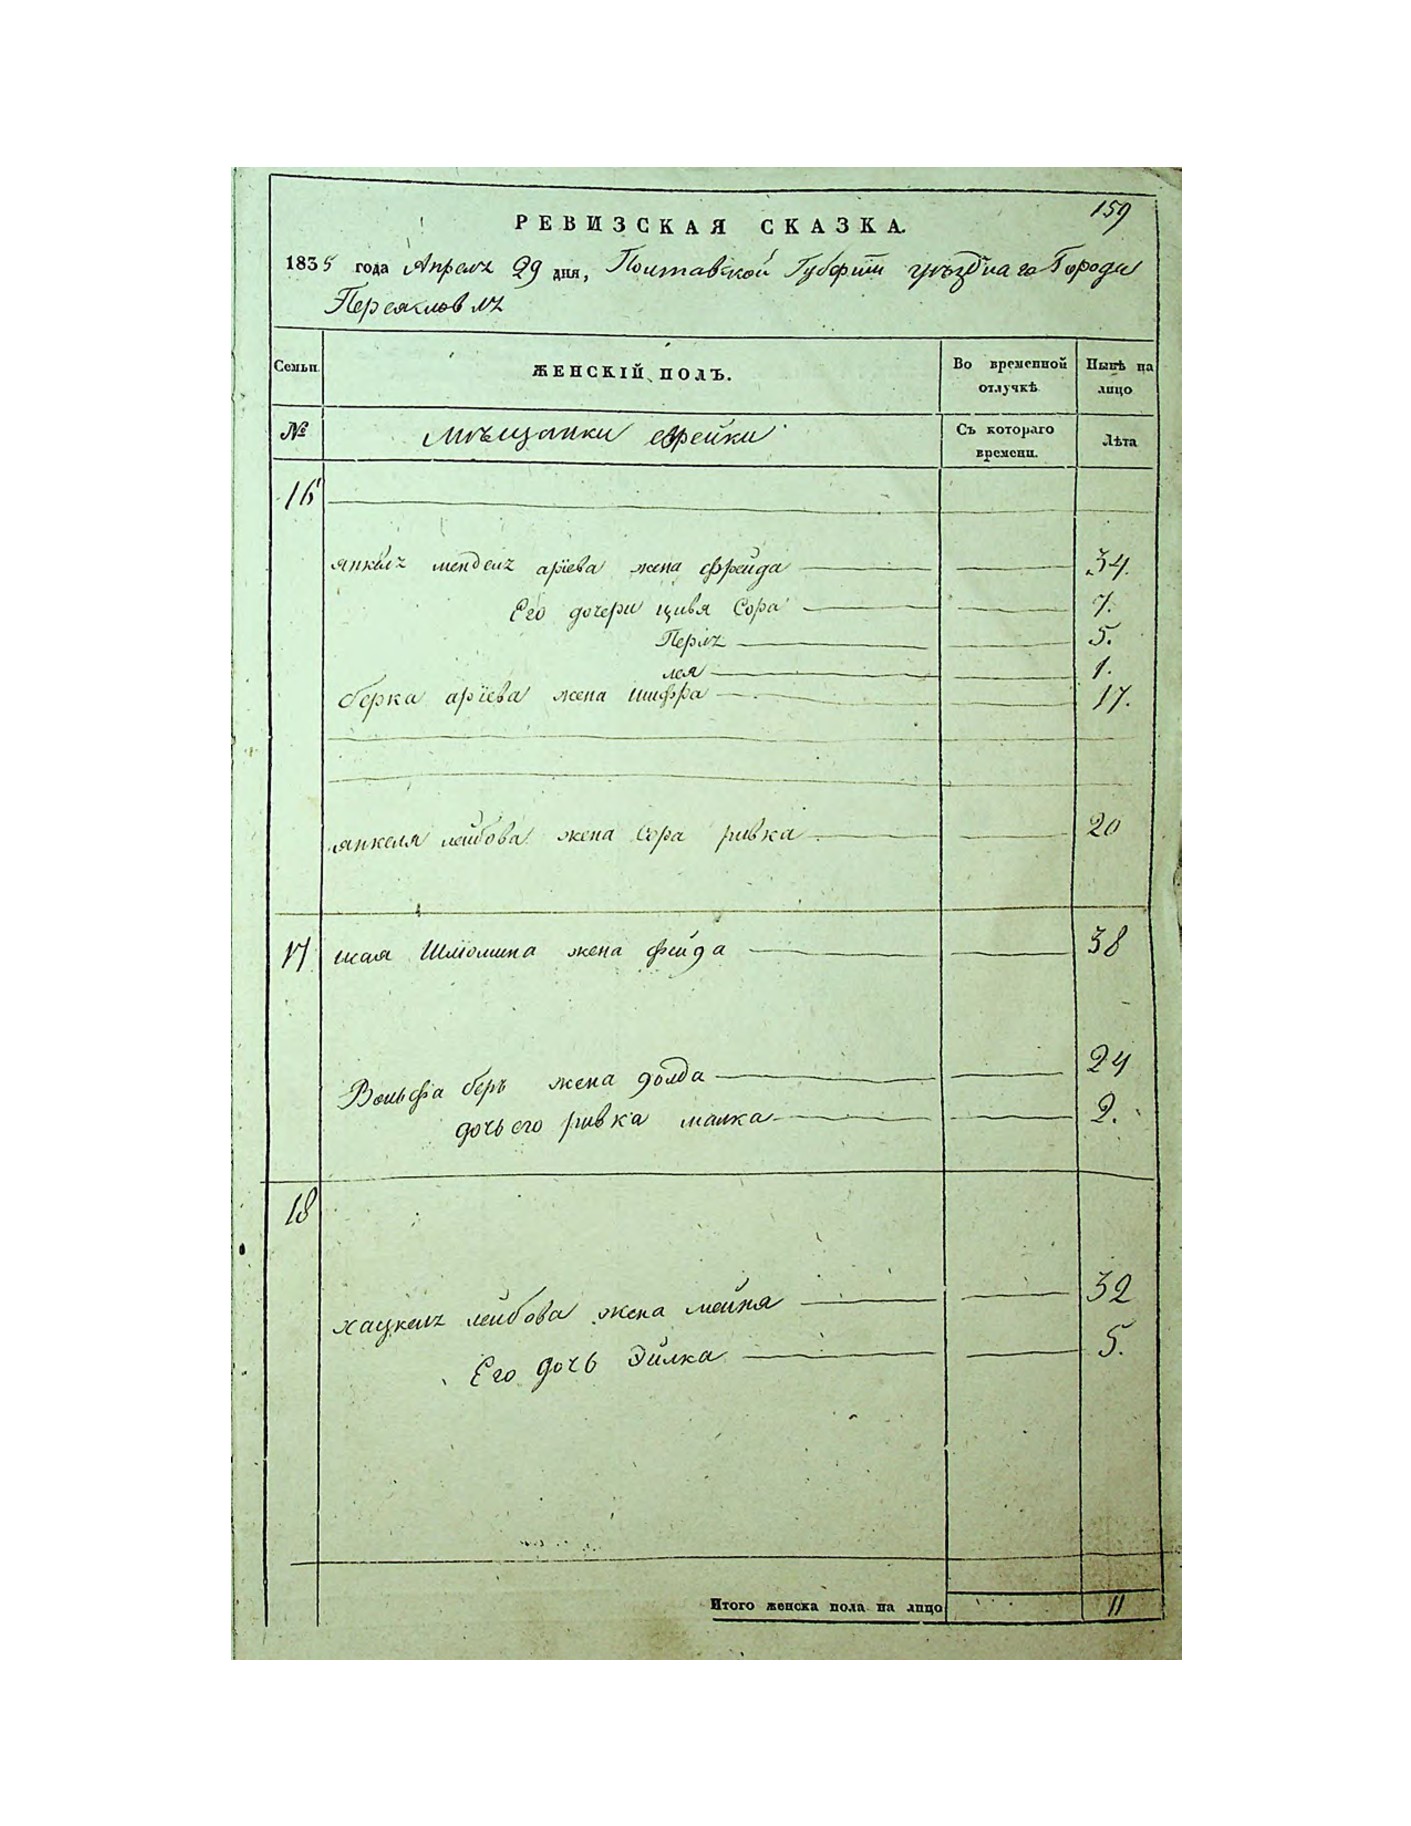 159
РЕВИЗСКАЯ СКАЗКА.
1835 года Апреля 29 дня, Полтавской Губернiи уѣзднаго Города
Переяславля
Семьи. ЖЕНСКIЙ ПОЛЪ. Во временной отлучкѣ Нынѣ на лицо
№ Мѣщанки еврейки Съ котораго времени. Лѣта
16
янкель мендель арiева жена фрейда 34.
Его дочери цивя Сора 7.
Перля 5.
лея 1.
берка арiева жена шифра 17.
янкеля лейбова жена Сора ривка 20
17 шая Шлiомина жена фейда 38
Вольфа беръ жена голда 24
дочь его ривка малка 2.
18
хацкель лейбова жена мейня 32
Его дочь Эйлка 5.
Итого женска пола на лицо 11